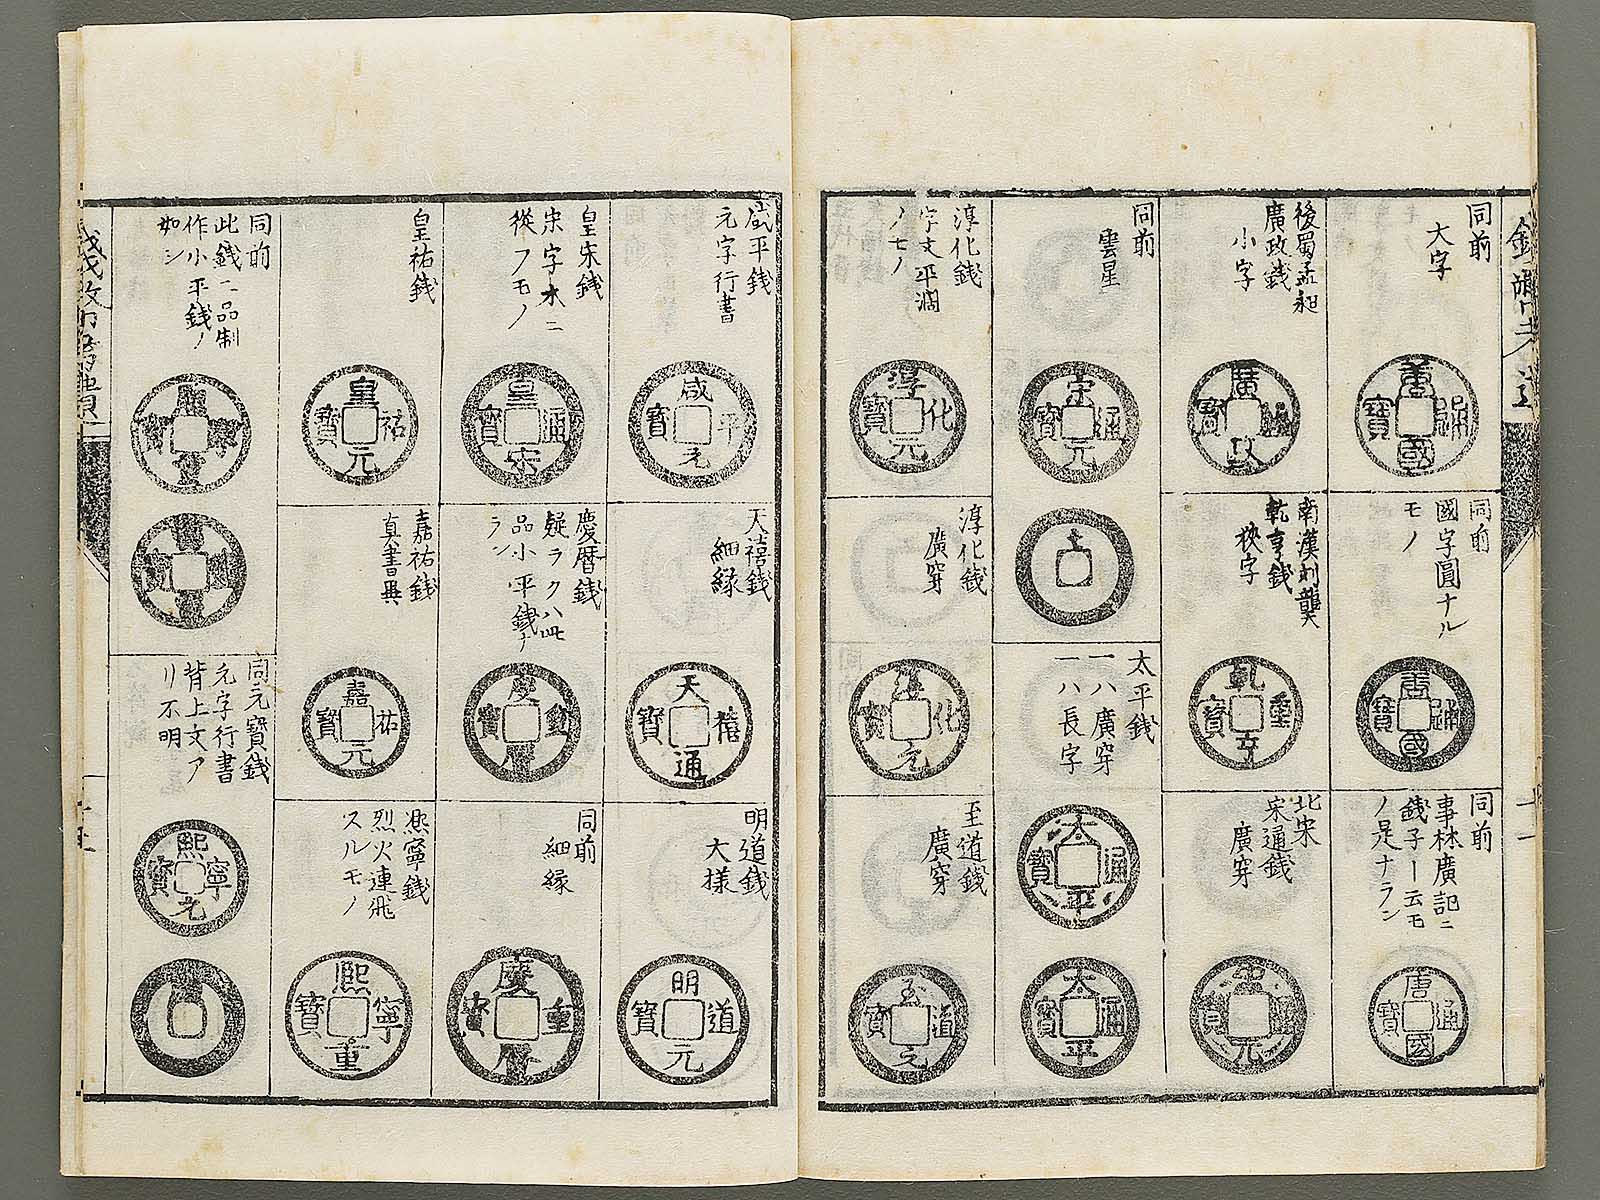 同前
大字
唐通國寶
同前
國字圓ナル
モノ
唐通國寶
同前
事林廣記ニ
錢子ー云モ
ノ是ナラン
唐通國寶
後蜀孟昶
廣政錢
小字
廣通政寶
南漢劉龑
乾亨錢
狹字
乾重亨寶
北宋
宋通錢
廣穿
宋通元寶
同前
雲星
宋通元寶
太平錢
一ハ廣穿
一ハ長字
太通平寶
太通平寶
淳化錢
字文平濶
ノモノ
淳化元寶
淳化錢
廣穿
淳化元寶
至道錢
廣穿
至道元寶
咸平錢
元字行書
咸平元寶
天禧錢
細緣
天禧通寶
明道錢
大樣
明道元寶
皇宋錢
宋字木ニ
從フモノ
皇通宋寶
慶曆錢
疑ラクハ此
品小平錢ナ
ラン
慶重曆寶
同前
細緣
慶重曆寶
皇祐錢
皇祐元寶
嘉祐錢
真書異
嘉祐元寶
熙寧錢
烈火連飛
スルモノ
熙寧重寶
同前
此錢二品制
作小平錢ノ
如シ
同元寶錢
元字行書
背上文ア
リ不明
熙寧元寶